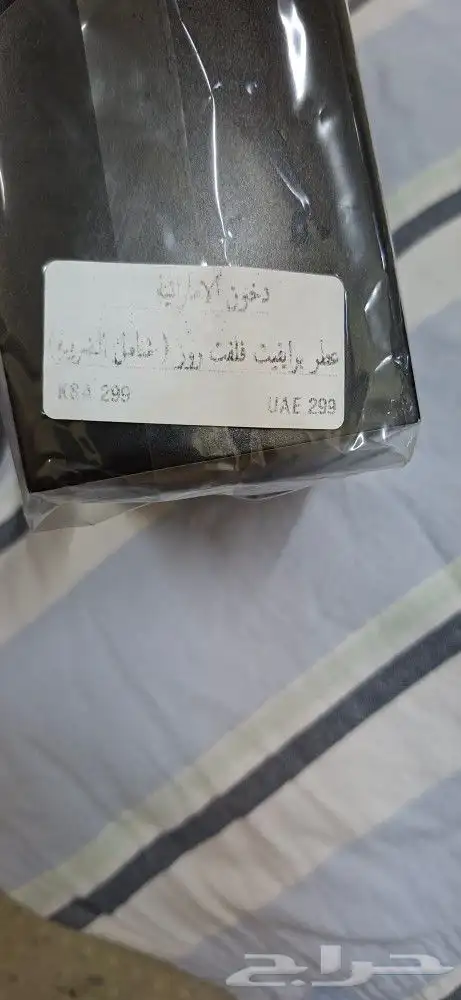 دخون الاماراتية
عطر برايفيت فلفت روز ( شامل الضريبة)
KSA 299
UAE 299
حراج